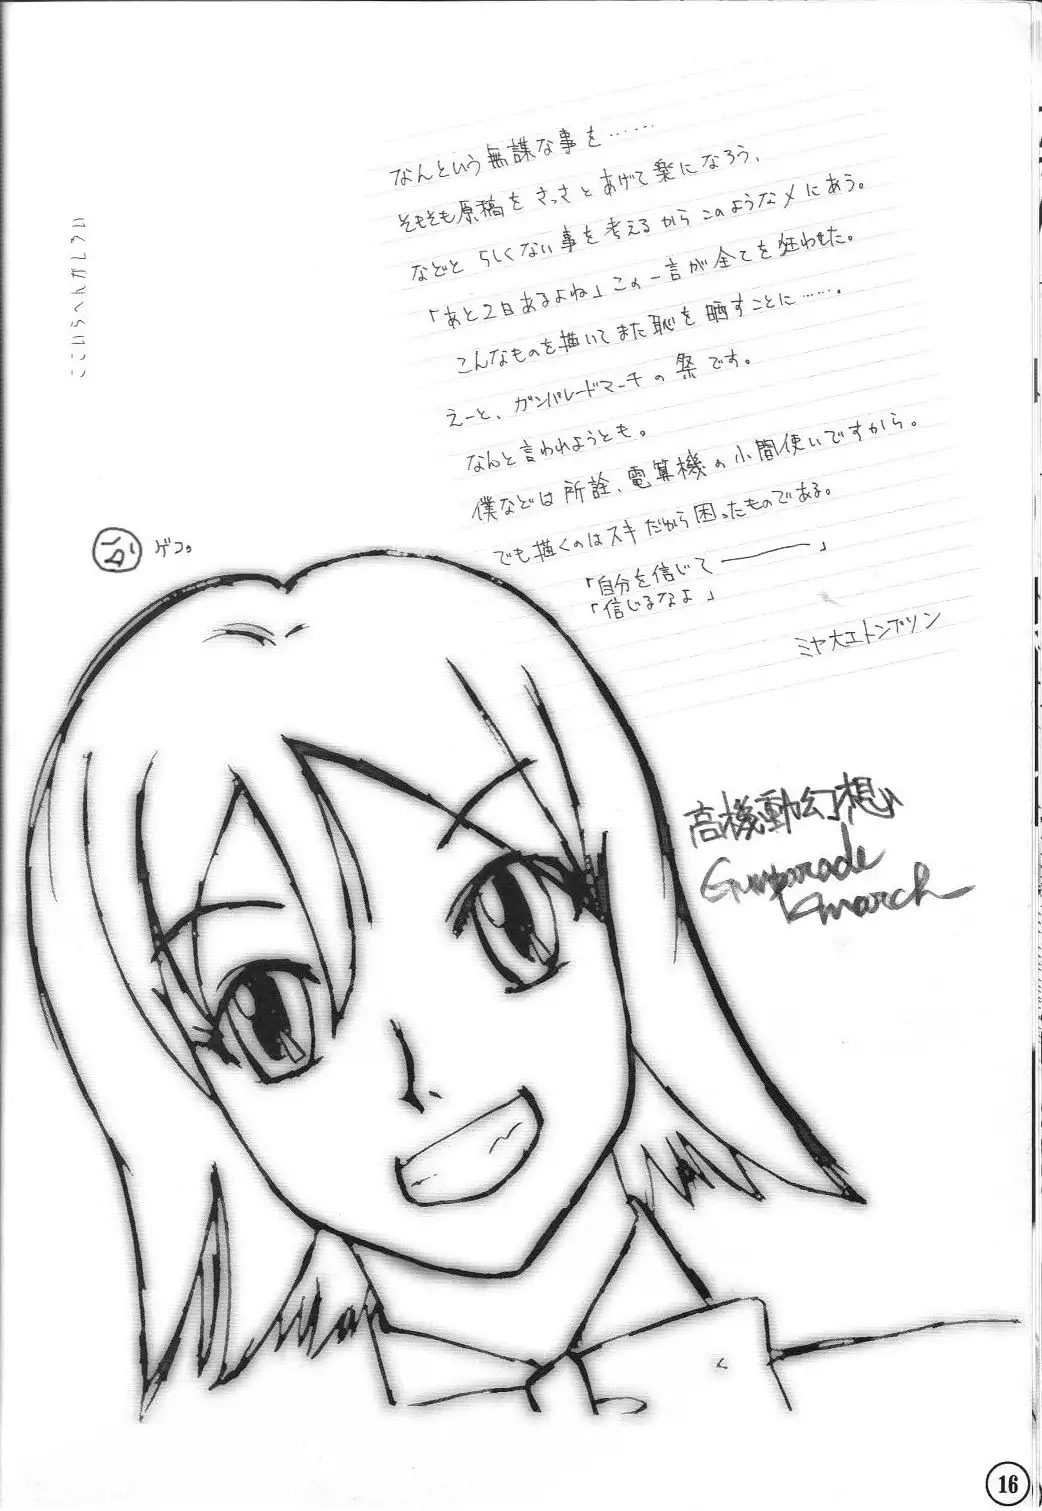 なんという無謀な事を……
そもそも原稿をさっさとあげて楽になろう、
などとらしくない事を考えるからこのようなメにあう。
「あと2日あるよね」この一言が全てを狂わせた。
こんなものを描いてまた恥を晒すことに……。
えーと、ガンパレードマーチの祭です。
なんと言われようとも。
僕などは所詮、電算機の小間使いですから。
でも描くのはスキだから困ったものである。
「自分を信じて―――」
「信じるなよ」
ミヤ大エトンプソン
ゲコ。
高機動幻想
Gunparade
march
16